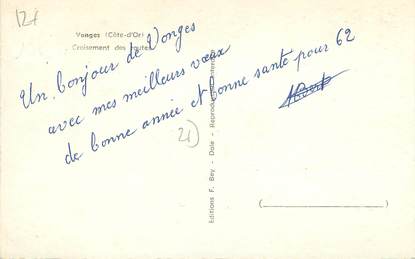 121
Vonges (Côte-d'Or)
Croisement des routes
Un bonjour de Vonges
avec mes meilleurs vœux
de bonne année et bonne santé pour 62
21)
Editions F. Bey - Dole - Reproduction interdite